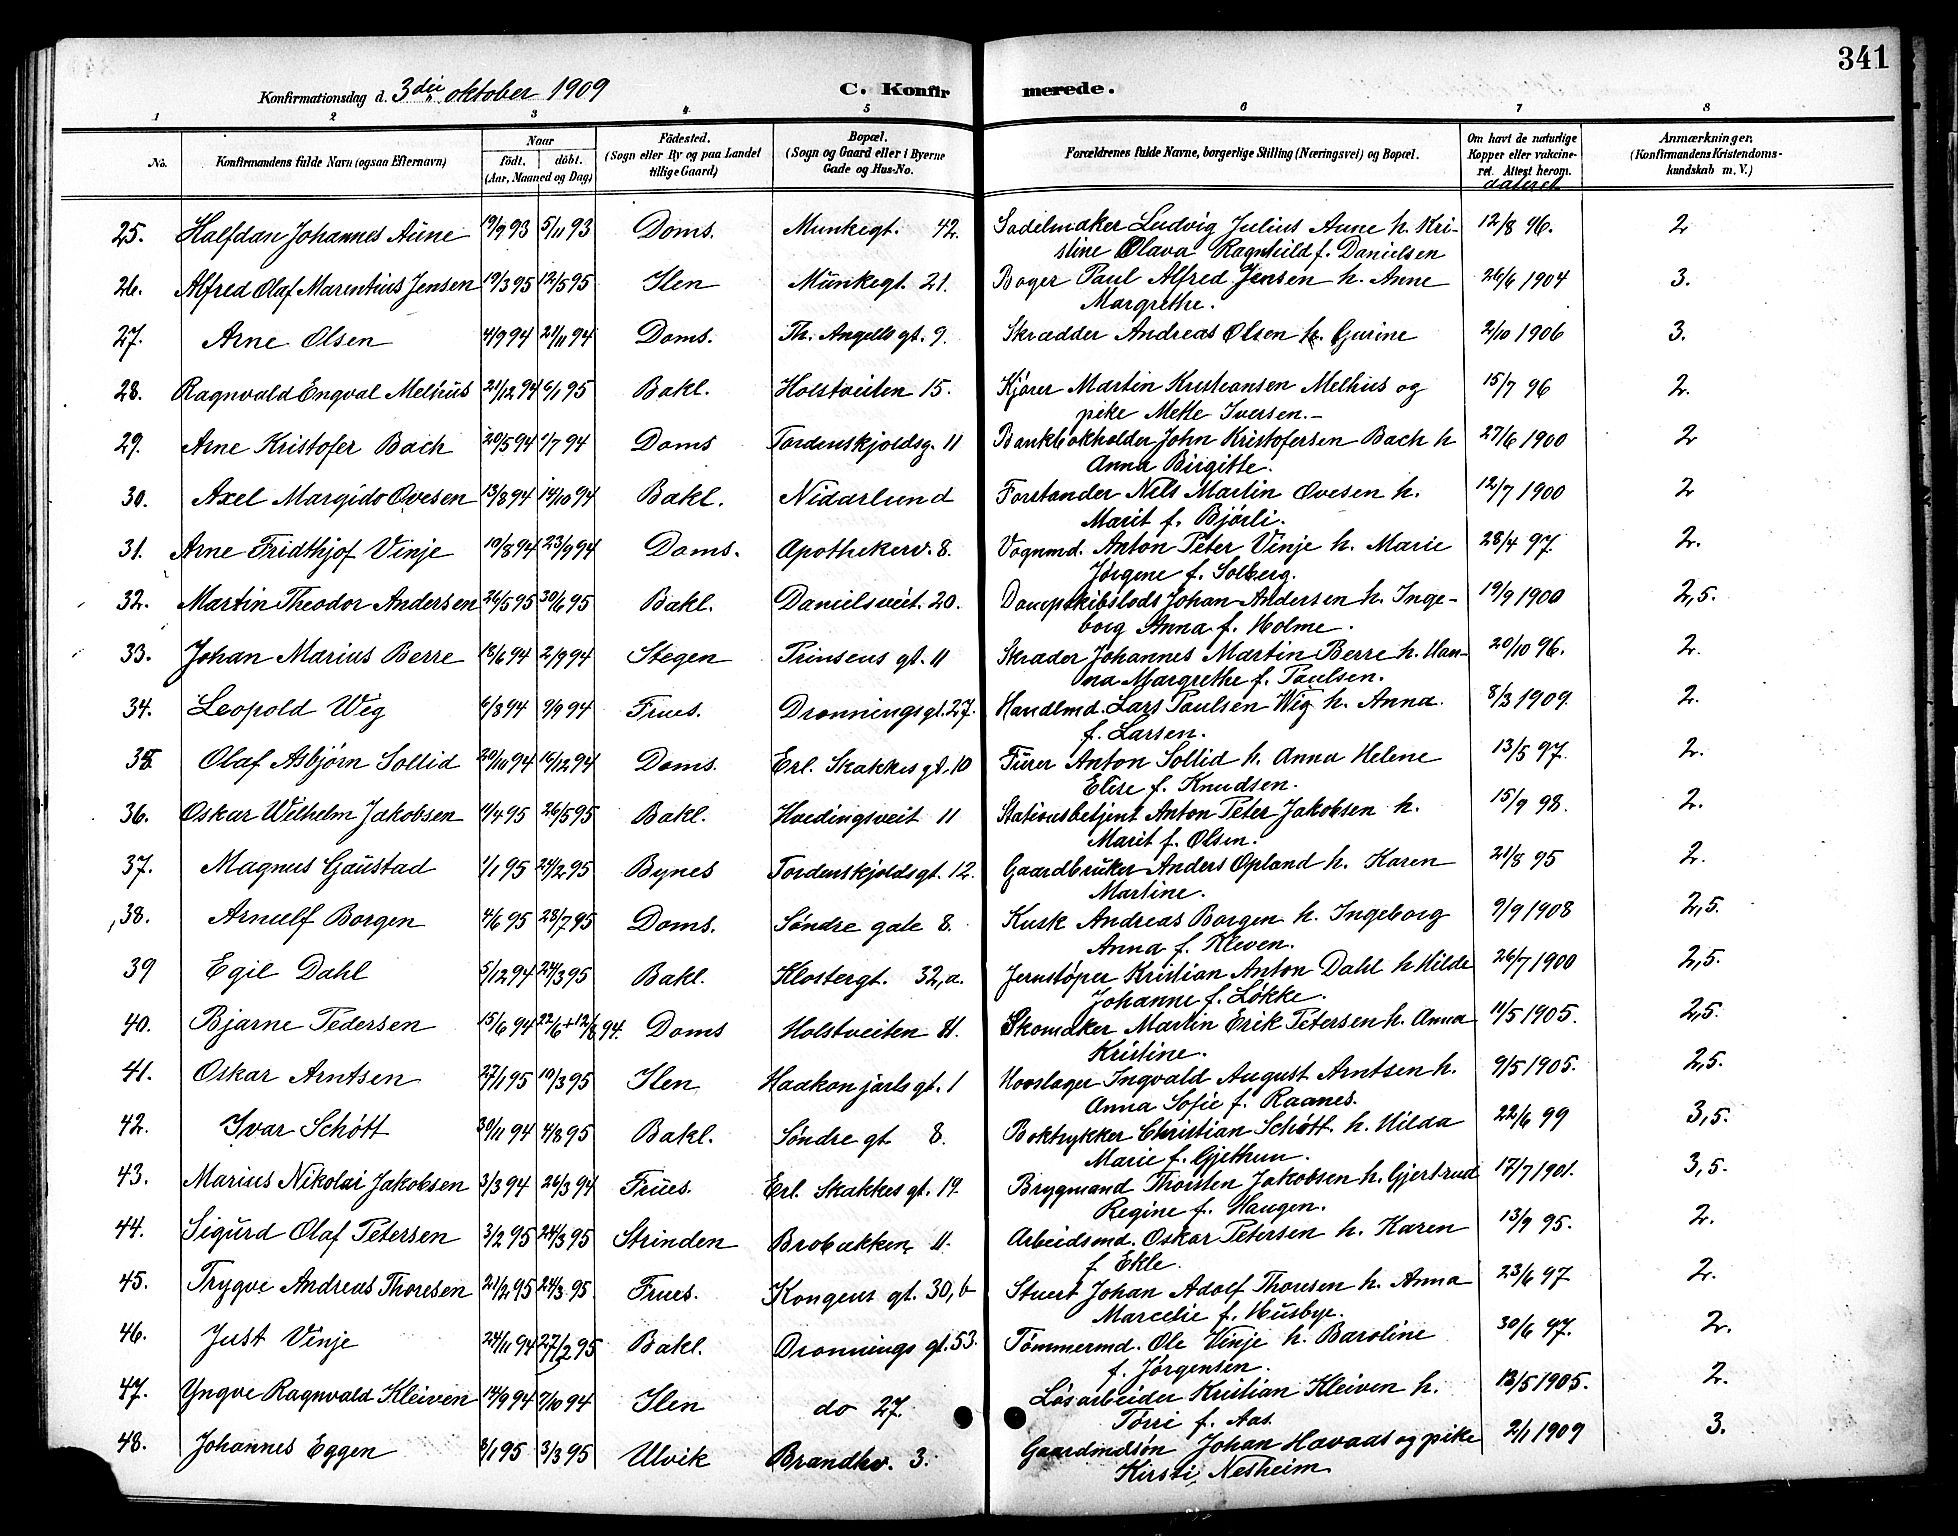 341
Konfirmationsdag d. 3die oktober 1909 C. Konfirmerede.
1 2 3 4 5 6 7 8
No. Konfirmandens fulde Navn (ogsaa Efternavn) Naar født. døbt. (Aar, Maaned og Dag) Fødested. (Sogn eller By og paa Landet tillige Gaard) Bopæl. (Sogn og Gaard eller i Byerne Gade og Hus-No. Forældrenes fulde Navne, borgerlige Stilling (Næringsvei) og Bopæl. Om havt de naturlige Kopper eller vakcineret. Attest herom. dateret Anmærkninger, (Konfirmandens Kristendomskundskab m. V.)
25. Halfdan Johannes Aune 19/9 93 5/11 93 Doms. Munkegt. 42. Sadelmaker Ludvig Julius Aune h. Kri- 12/8 96. 2
stine Olava Ragnhild f. Danielsen
26. Alfred Olaf Marentius Jensen 19/3 95 12/5 95 Ilen Munkegt. 21. Bager Paul Alfred Jensen h. Anne 26/6 1904 3.
Margrethe.
27. Arne Olsen 4/9 94 21/11 94 Doms. Th. Angells gt. 9. Skrædder Andreas Olsen h. Gurine 2/10 1906 3.
28. Ragnvald Engval Melhus 21/12 94 6/1 95 Bakl. Holstveiten 15. Kjører Martin Kristiansen Melhus og 15/7 96 2.
pike Mette Iversen.-
29. Arne Kristofer Bach 20/5 94 1/7 94 Doms Tordenskjoldsg. 11 Bankbokholder John Kristofersen Bach h 27/6 1900 2
Anna Birgitte.
30. Axel Margido Ovesen 13/8 94 14/10 94 Bakl. Nidarlund Forstander Nils Martin Ovesen h. 12/7 1900 2
Marit f. Bjørli.
31. Arne Fridthjof Vinje 10/8 94 23/9 94 Doms. Apothekerv. 8. Vognmd. Anton Peter Vinje h. Marie 28/4 97. 2.
Jørgene f. Solberg.
32. Martin Theodor Andersen 26/5 95 30/6 95 Bakl. Danielsveit. 20. Dampskibslods Johan Andersen h. Inge- 19/9 1900 2,5.
borg Anna f. Holme.
33. Johan Marius Berre 18/6 94 2/9 94 Stegen Prinsens gt. 11 Skræder Johannes Martin Berre h. Han- 20/10 96. 2.
na Margrethe f. Paulsen.
34. Leopold Wig 6/8 94 9/9 94 Frues. Dronningsgt. 27. Handlmd. Lars Paulsen Wig h. Anna 8/3 1909. 2.
f. Larsen.
35 Olaf Asbjørn Sollid 20/11 94 16/12 94 Doms. Erl. Skakkes gt. 10 Fürer Anton Sollid h. Anna Helene 13/5 97. 2.
Elise f. Knudsen.
36. Oskar Wilhelm Jakobsen 11/4 95 26/5 95 Bakl. Hvedingsveit 11 Stationsbetjent Anton Peter Jakobsen h. 15/9 98. 2.
Marit f. Olsen.
37. Magnus Gaustad 1/1 95 24/2 95 Bynes Tordenskjoldsgt. 12. Gaardbruker Anders Opland h. Karen 21/8 95 2.
Martine.
38. Arnulf Borgen 4/6 95 28/7 95 Doms. Søndre gate 8. Kusk Andreas Borgen h. Ingeborg 9/9 1908 2,5.
Anna f. Kleven.
39 Egil Dahl 5/12 94 24/3 95 Bakl. Klostergt. 32,a. Jernstøper Kristian Anton Dahl h Hilde 26/7 1900 2,5.
Johanne f. Løkke.
40. Bjarne Pedersen 15/6 94 22/6+12/8 94. Doms Holstveiten 11. Skomaker Martin Erik Petersen h. Anna 11/5 1905. 2,5.
Kristine.
41. Oskar Arntsen 27/1 95 10/3 95 Ilen Haakon jarls gt. 1 Hovslager Ingvald August Arntsen h. 9/5 1905. 2,5
Anna Sofie f. Raanes.
42. Ivar Schøtt 30/11 94 4/8 95 Bakl. Søndre gt 8. Boktrykker Christian Schøtt h. Hilda 22/6 99 3,5.
Marie f. Gjethun.
43. Marius Nikolai Jakobsen 3/3 94 26/3 94 Frues. Erl. Skakkes gt. 19. Brygmand Thorsten Jakobsen h. Gjertrud 17/7 1901. 3,5.
Regine f. Haugen.
44. Sigurd Olaf Petersen 3/2 95 24/3 95 Strinden Brobakken 11. Arbeidsmd. Oskar Petersen h. Karen 13/9 95. 2.
f Ekle.
45. Trygve Andreas Thoresen 21/2 95 24/3 95 Frues. Kongens gt. 30,b Stuert Johan Adolf Thoresen h. Anna 23/6 97 2.
Marcelie f. Husbye.
46. Just Vinje 24/11 94 27/2 95 Bakl. Dronnings gt. 53. Tømmermd. Ole Vinje h. Baroline 30/6 97. 2.
f. Jørgensen.
47. Yngve Ragnvald Kleiven 14/9 94 7/10 94 Ilen do 27. Løsarbeider Kristian Kleiven h. 13/5 1905. 2.
Tørri f. Aas.
48. Johannes Eggen 8/1 95 3/3 95 Ulvik Brandhv. 3. Gaardmdsøn Johan Havaas og pike 2/1 1909 3.
Kirsti Nesheim